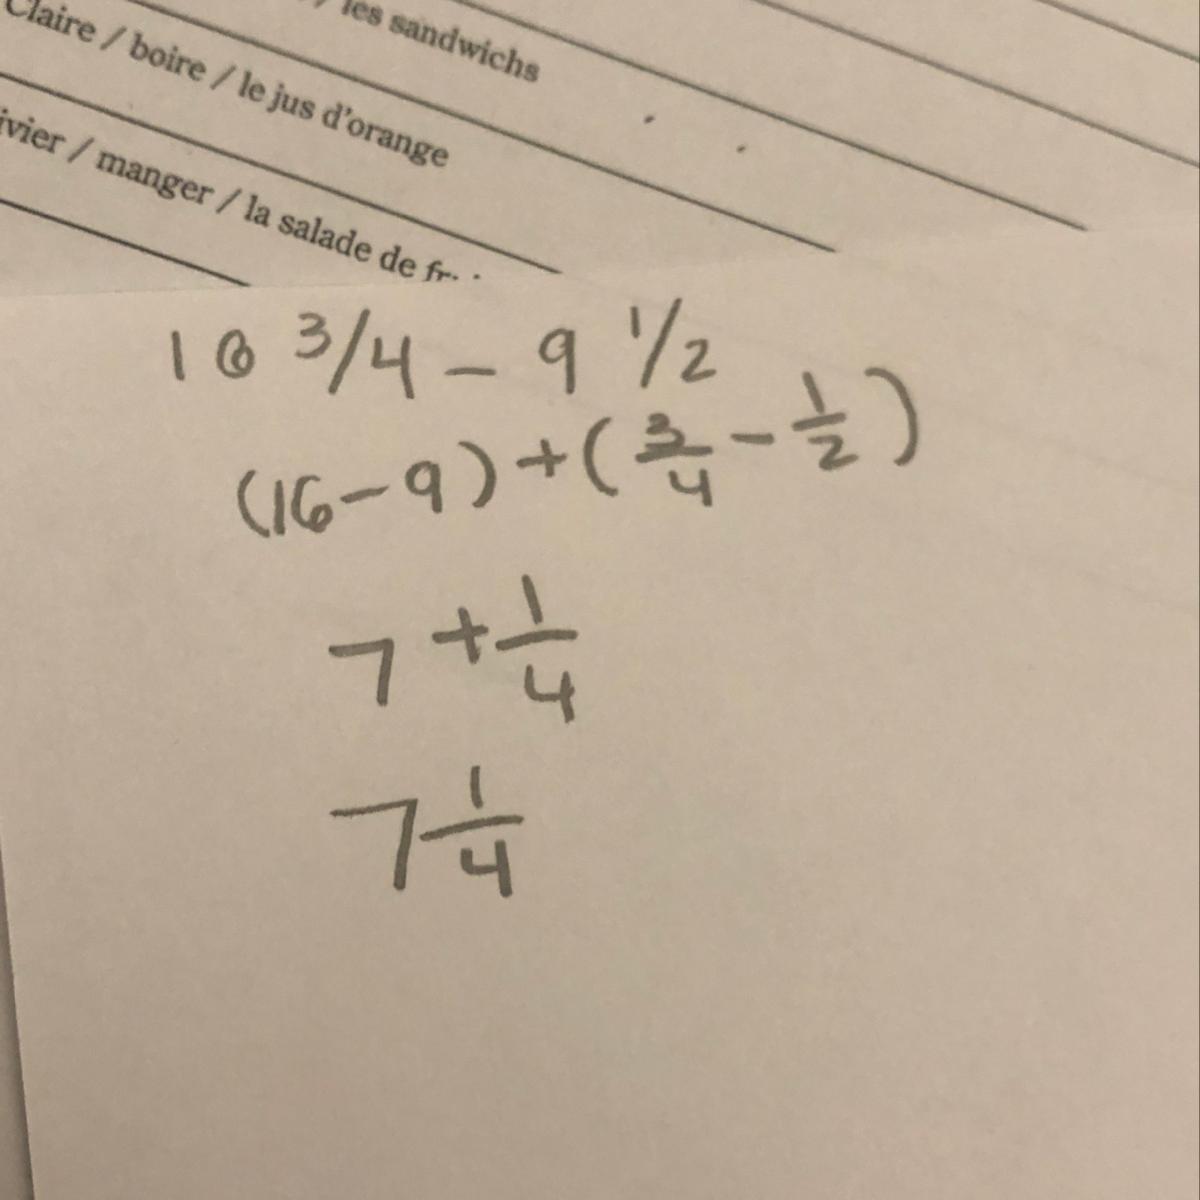 / les sandwichs
Claire / boire / le jus d'orange
ivier / manger / la salade de
16 3/4 - 9 1/2
(16-9) + (3/4 - 1/2)
7 + 1/4
7 1/4